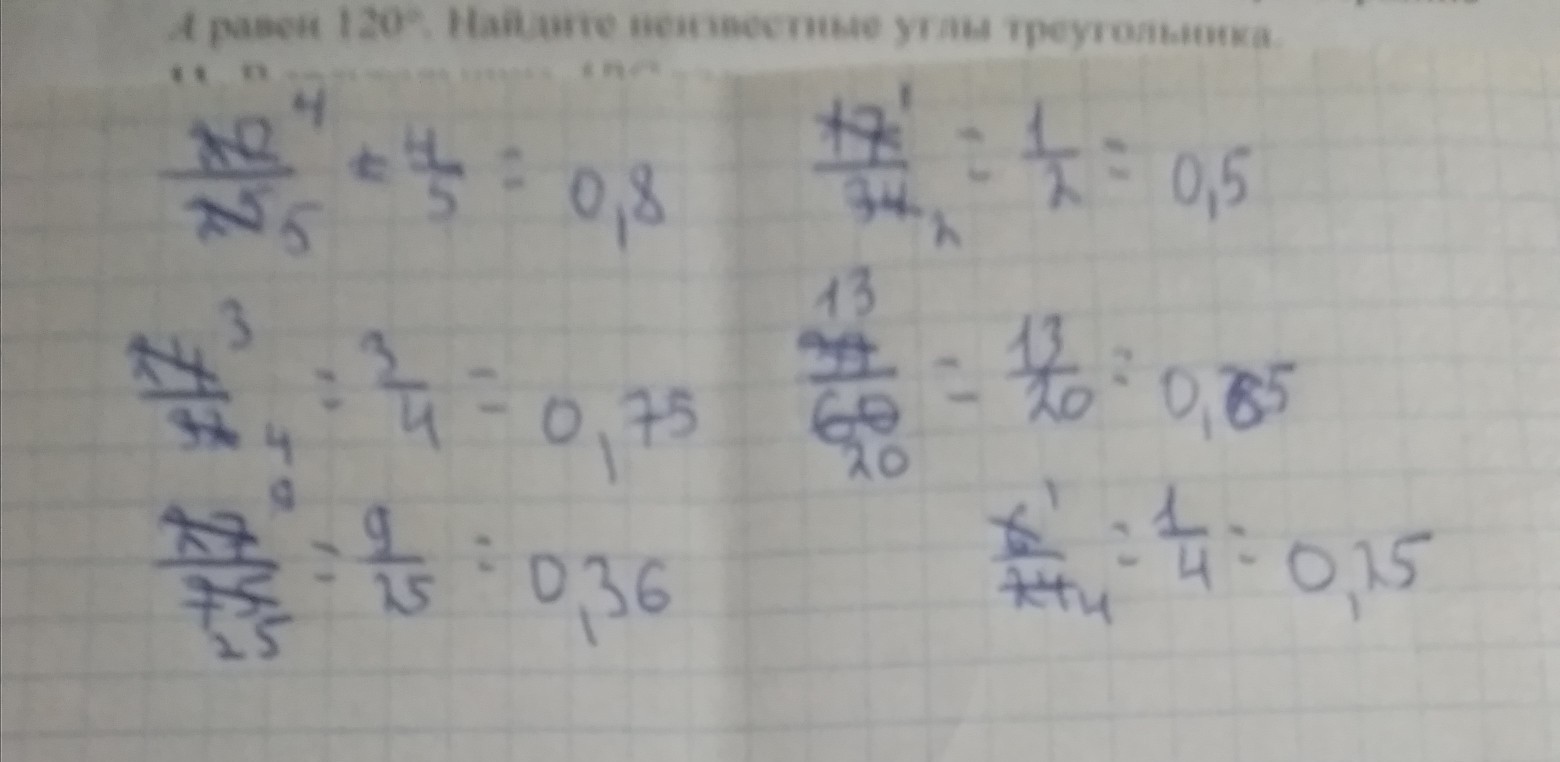 А равен 120°. Найдите неизвестные углы треугольника.
20/25 4/5 = 4/5 = 0,8
17/34 1/2 = 1/2 = 0,5
24/32 3/4 = 3/4 = 0,75
39/60 13/20 = 13/20 = 0,65
27/75 9/25 = 9/25 = 0,36
6/24 1/4 = 1/4 = 0,25